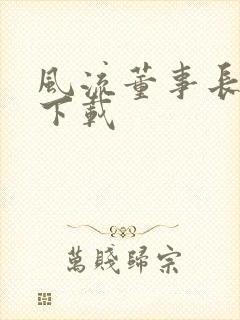 風流董事長
下載
萬賤歸宗